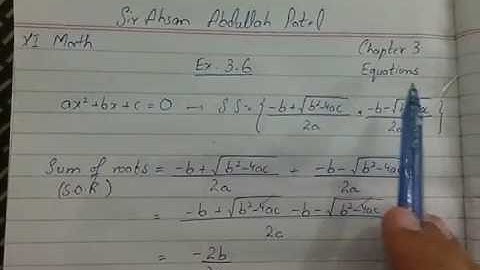 Sir Ahsan Abdullah Patel
XI Math
Chapter 3
Ex. 3.6
Equations
ax²+bx+c=0 → S.S = { (-b+√(b²-4ac))/2a , (-b-√(b²-4ac))/2a }
Sum of roots = (-b+√(b²-4ac))/2a + (-b-√(b²-4ac))/2a
(S.O.R)
= (-b+√(b²-4ac) -b-√(b²-4ac))/2a
= -2b